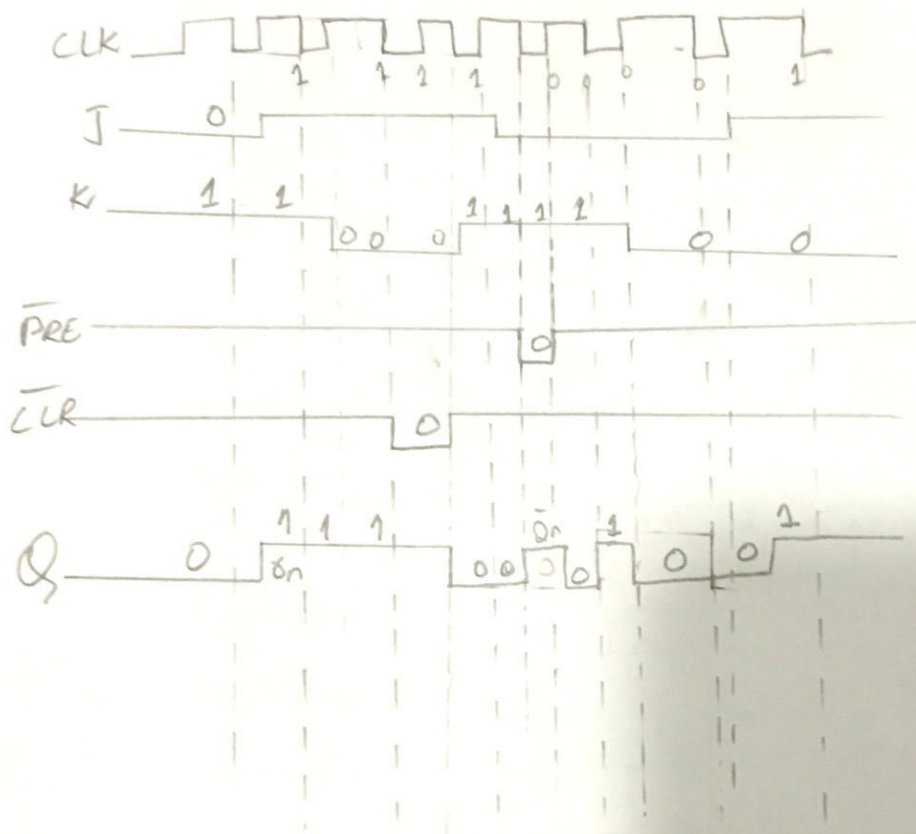 CLK
1 1 1 1 0 0 0 0 1
J 0
K 1 1 0 0 0 1 1 1 1 0 0
P̅R̅E̅ 0
C̅L̅R̅ 0
Q̅n 1
1 1 1 1
Q 0 Qn 0 0 0 0 0 0